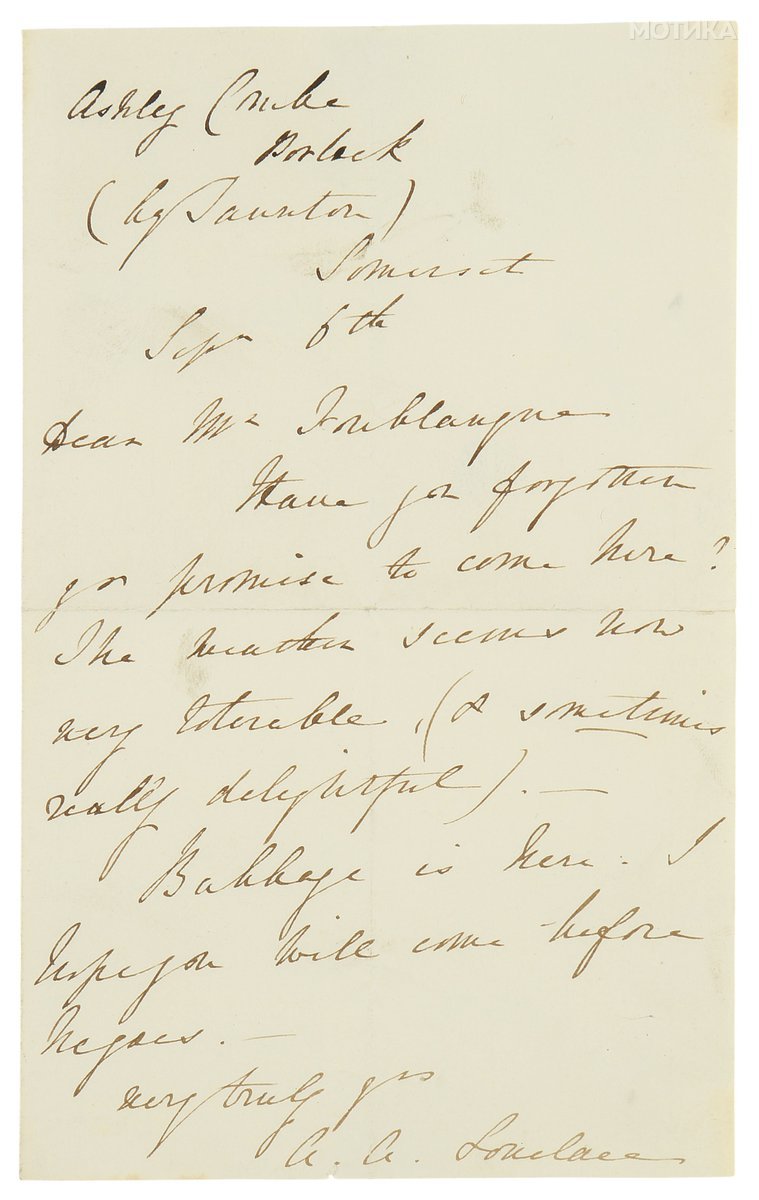 МОТИКА
Ashley Combe
Porlock
(by Taunton)
Somerset
Sepr 6th
Dear Mr Fonblanque
Have you forgotten
yr promise to come here?
The weather seems now
very tolerable, (& sometimes
really delightful). —
Babbage is here. I
hope you will come before
he goes. —
very truly yrs
A. A. Lovelace